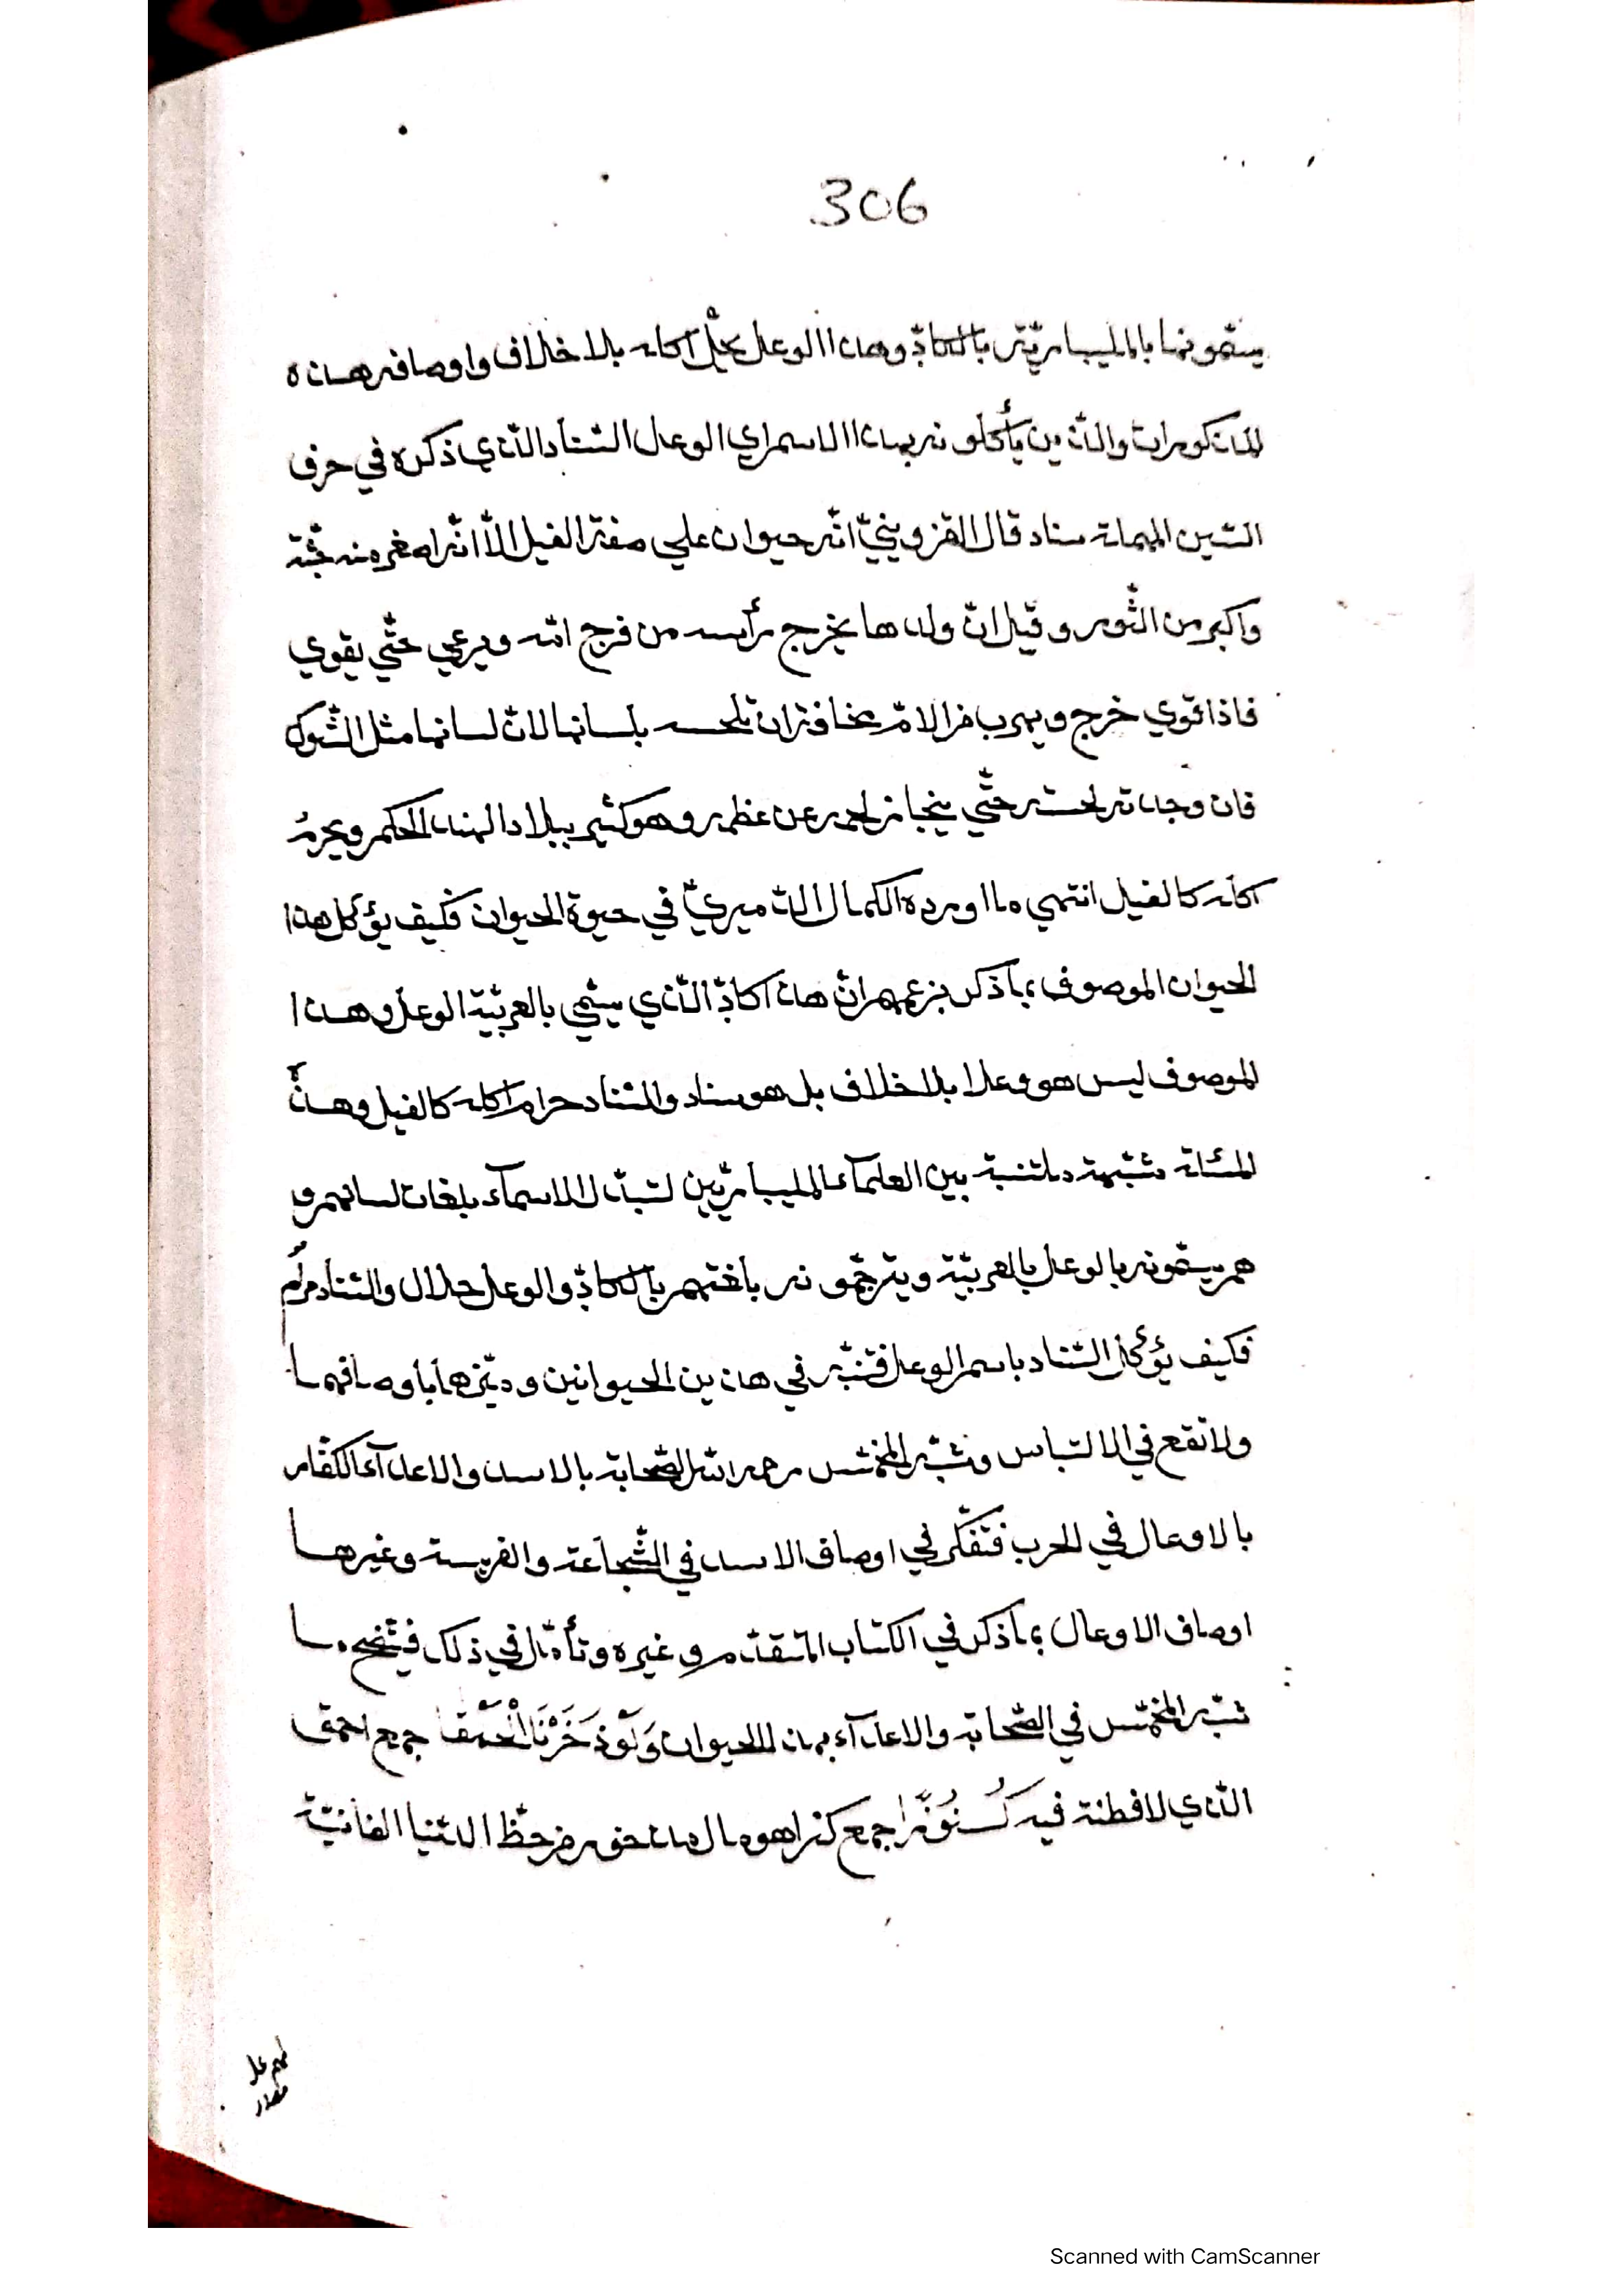 306
يسمّونها بالمليباريّة بالكاذّ وهذا الوعل يحلّ اكله بلا خلاف واوصافه هذه
المذكورات والذّين يأكلونه بهذا الاسم اي الوعل السّناد الّذي ذكره في حرف
السّين المهملة سناد قال القزوينيّ انّه حيوان علي صفة الفيل الّا انّه اصغر منه جثّة
واكبر من الثّور وقيل انّ ولدها يخرج رأسه من فرج امّه ويرعي حتّي يقوي
فاذا قوي خرج ويهرب من الامّ مخافة ان تلحسه بلسانها لانّ لسانها مثل الشّوك
فان وجدته لحسته حتّي ينحاز لحمه عن عظمه وهو كثير ببلاد الهند الحكم ويحرم
اكله كالفيل انتهي ما اورده الكمال الدّميريّ في حيوة الحيوان فكيف يؤكل هذا
الحيوان الموصوف بماذكر بزعمهم انّ هذا كاذّ الّذي يسمّي بالعربيّة الوعل وهذا
الموصوف ليس هو وعلا بلا خلاف بل هو سناد والسّناد حرام اكله كالفيل وهذه
المسئلة مشتبهة ملتبسة بين العلمآء المليباريّين لتبدّل الاسمآء بلغات لسانهم و
هم يسمّونه بالوعل بالعربيّة ويترجّمونه بلغتهم بالكاذّ والوعل حلال والسّناد حرام
فكيف يؤكل السّناد باسم الوعل فتنبّه في هذين الحيوانين وميّزهما باوصافهما
ولا تقع في الالتباس وشبّه المخمّس رحمه الله الصّحابة بالاسد والاعدآء الكفّار
بالاوعال في الحرب فتفكّر في اوصاف الاسد في الشّجاعة والفريسة وغيرها
اوصاف الاوعال بماذكر في الكتاب المتقدّم وغيره وتأمّل في ذلك فيتّضح ما
شبّه المخمّس في الصّحابة والاعدآء بهذا الحيوان وَلَوْ ذَخَرْنَا الْحَمْقَا جمع احمق
الّذي لا فطنة فيه كُنُوْزًا جمع كنز اهو مال مدخور من حظّ الدّنيا الفانيّة
Scanned with CamScanner